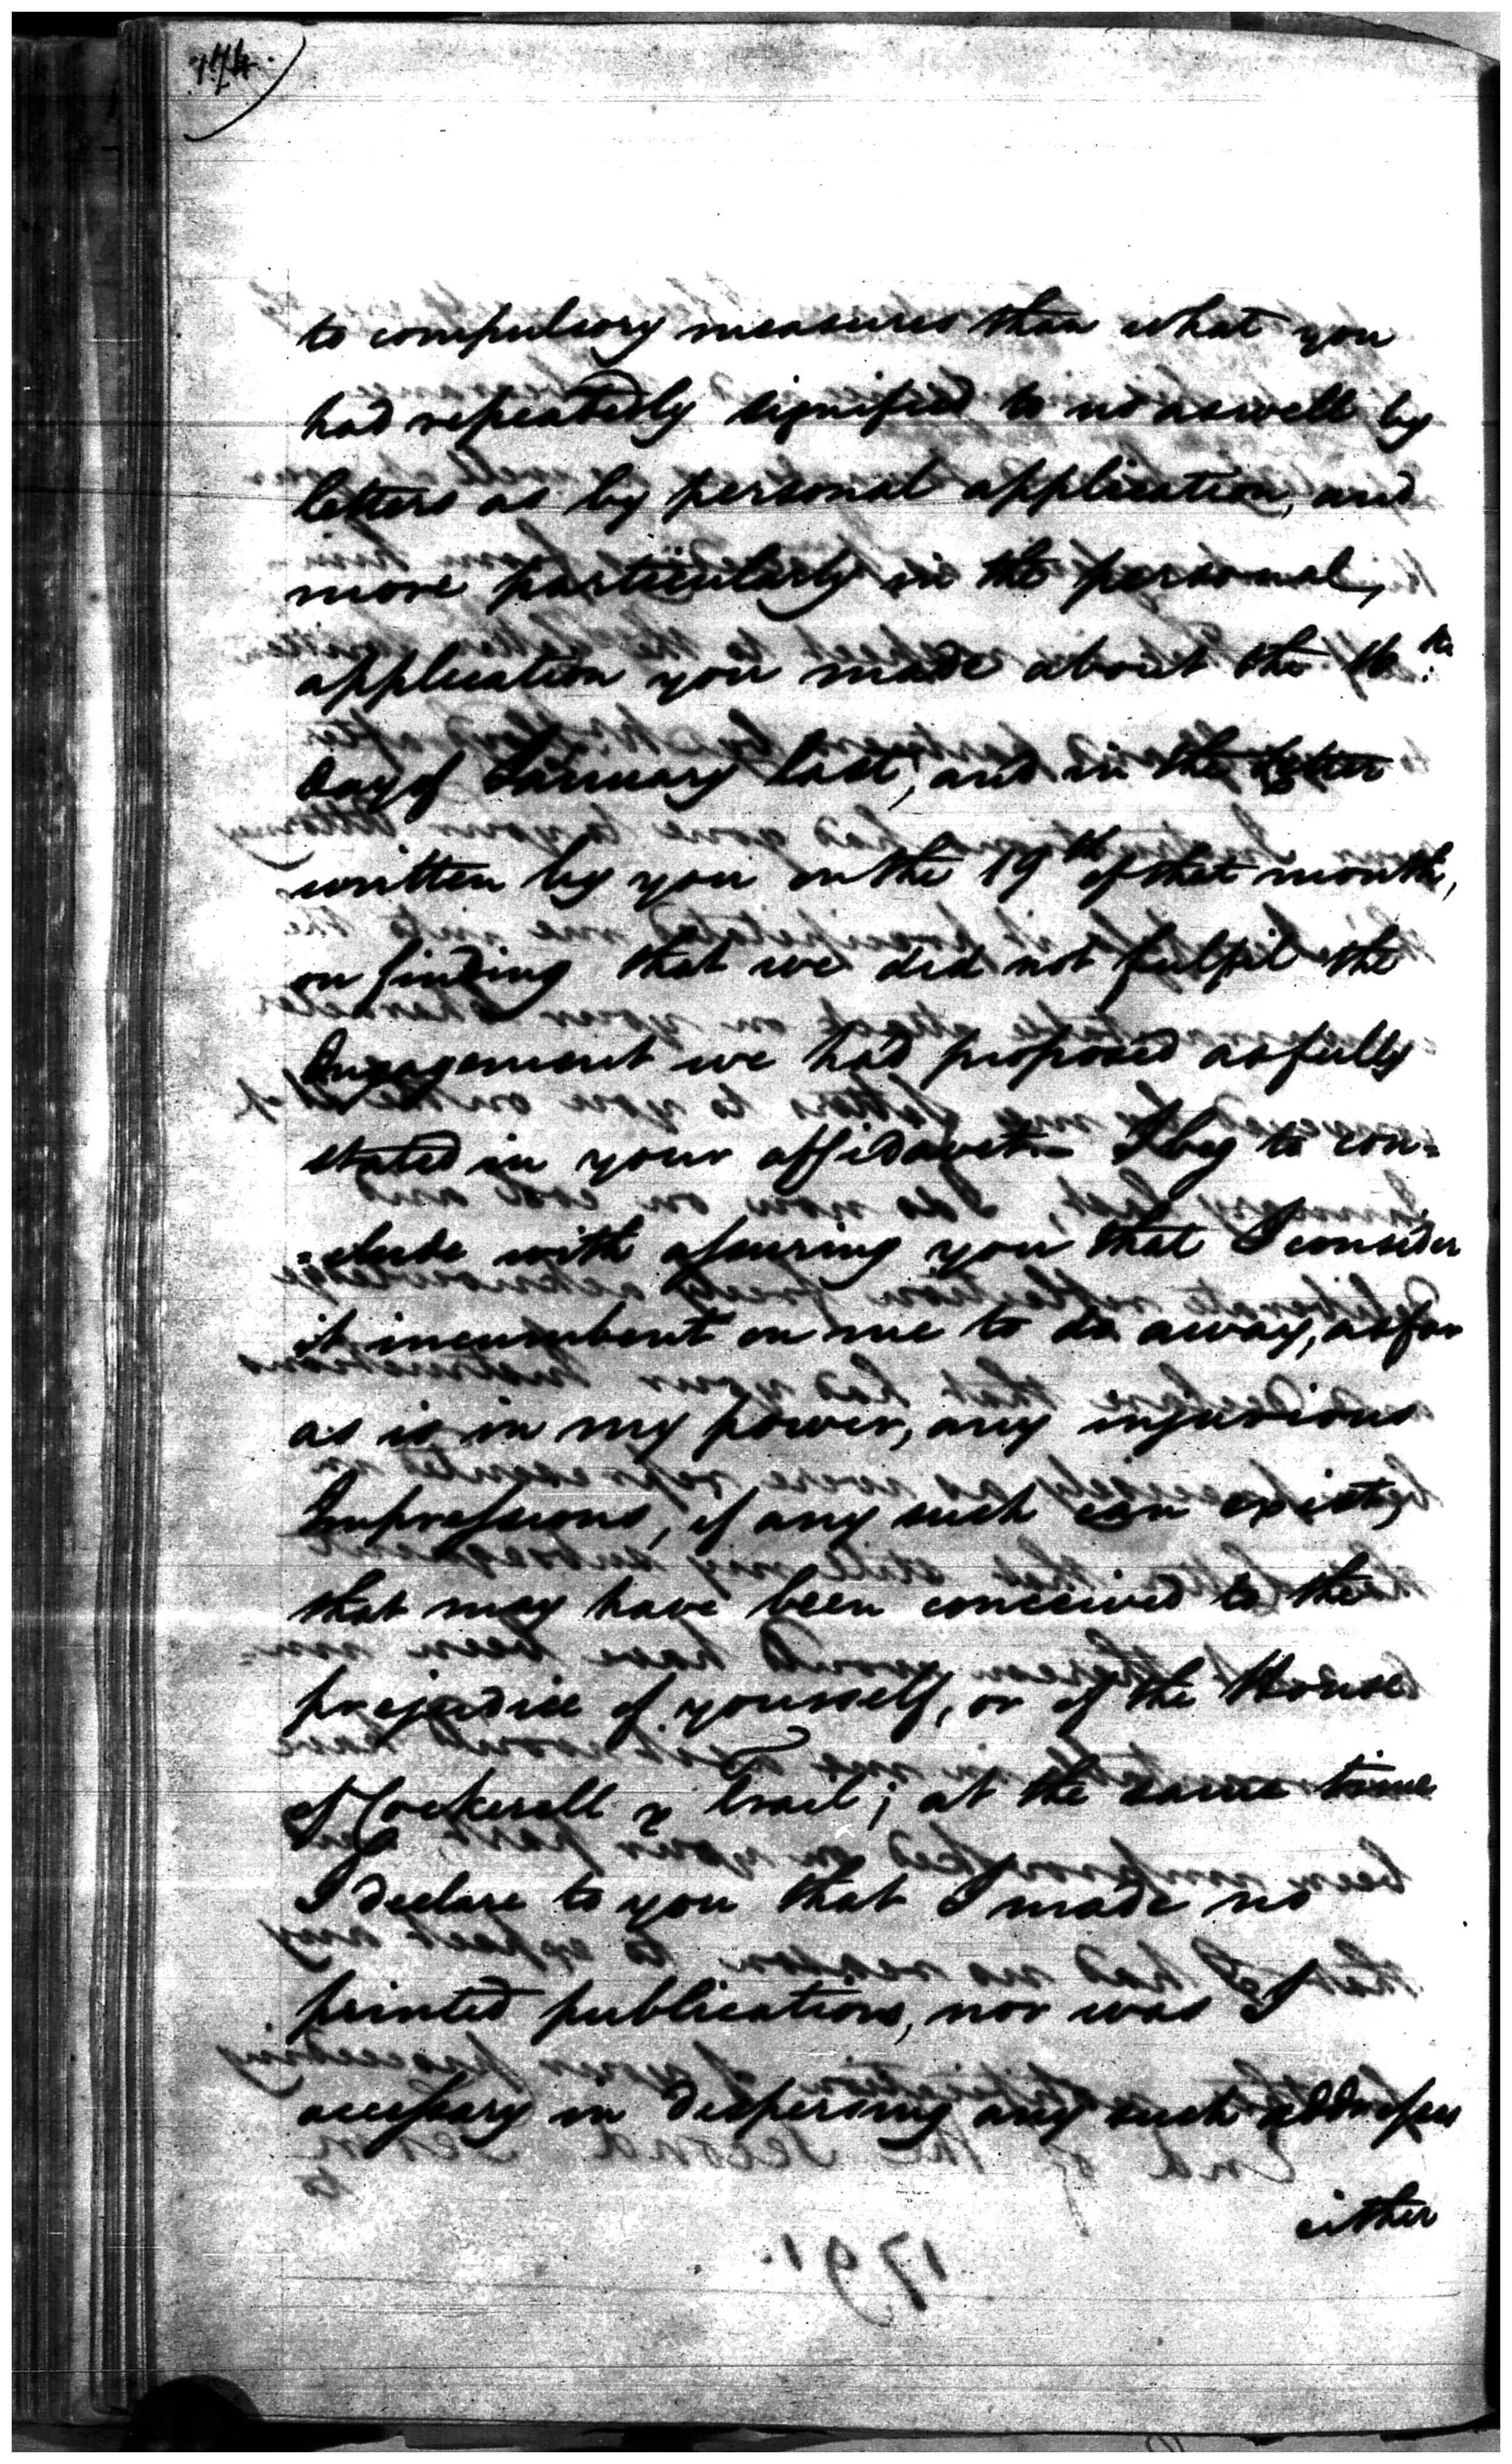 174
to compulsory measures than what you
had repeatedly signified to us aswell by
letters as by personal application, and
more particularly in the personal,
application you made about the 16.th
day of January last, and in the Letter
written by you on the 19th of that month,
on finding that we did not fulfil the
Engagement we had proposed as fully
stated in your affidavit. I beg to con=
=clude with assuring you that I consider
it incumbent on me to do away, as far
as is in my power, any injurious
Impressions, if any such can exist,
that may have been conceived to the
prejudice of yourself, or of the House
of Cockerell & Trail; at the same time
I declare to you that I made no
printed publications, nor was I
accessary in dispersing any such addresses
either